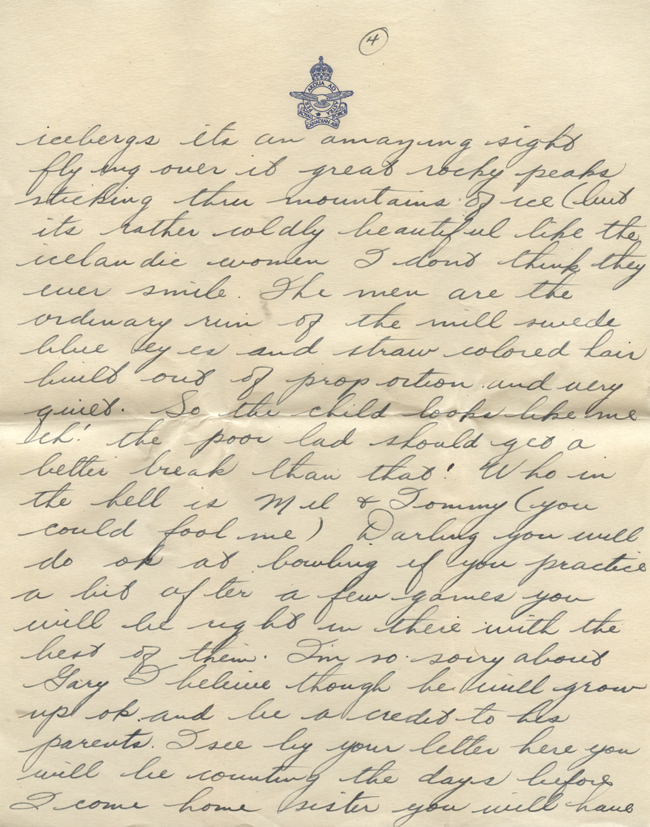 4
PER ARDUA AD ASTRA
ROYAL CANADIAN AIR FORCE
icebergs its an amazing sight
flying over it great rocky peaks
sticking thru mountains of ice (but
its rather coldly beautiful like the
icelandic women I dont think they
ever smile. The men are the
ordinary run of the mill swede
blue eyes and straw colored hair
built out of proportion and very
quiet. So the child looks like me
eh! the poor lad should get a
better break than that! Who in
the hell is Mel & Tommy (you
could fool me) Darling you will
do ok at bowling if you practice
a bit after a few games you
will be right in there with the
best of them. I'm so sorry about
Gary I believe though he will grow
up ok and be a credit to his
parents. I see by your letter here you
will be counting the days before
I come home sister you will have